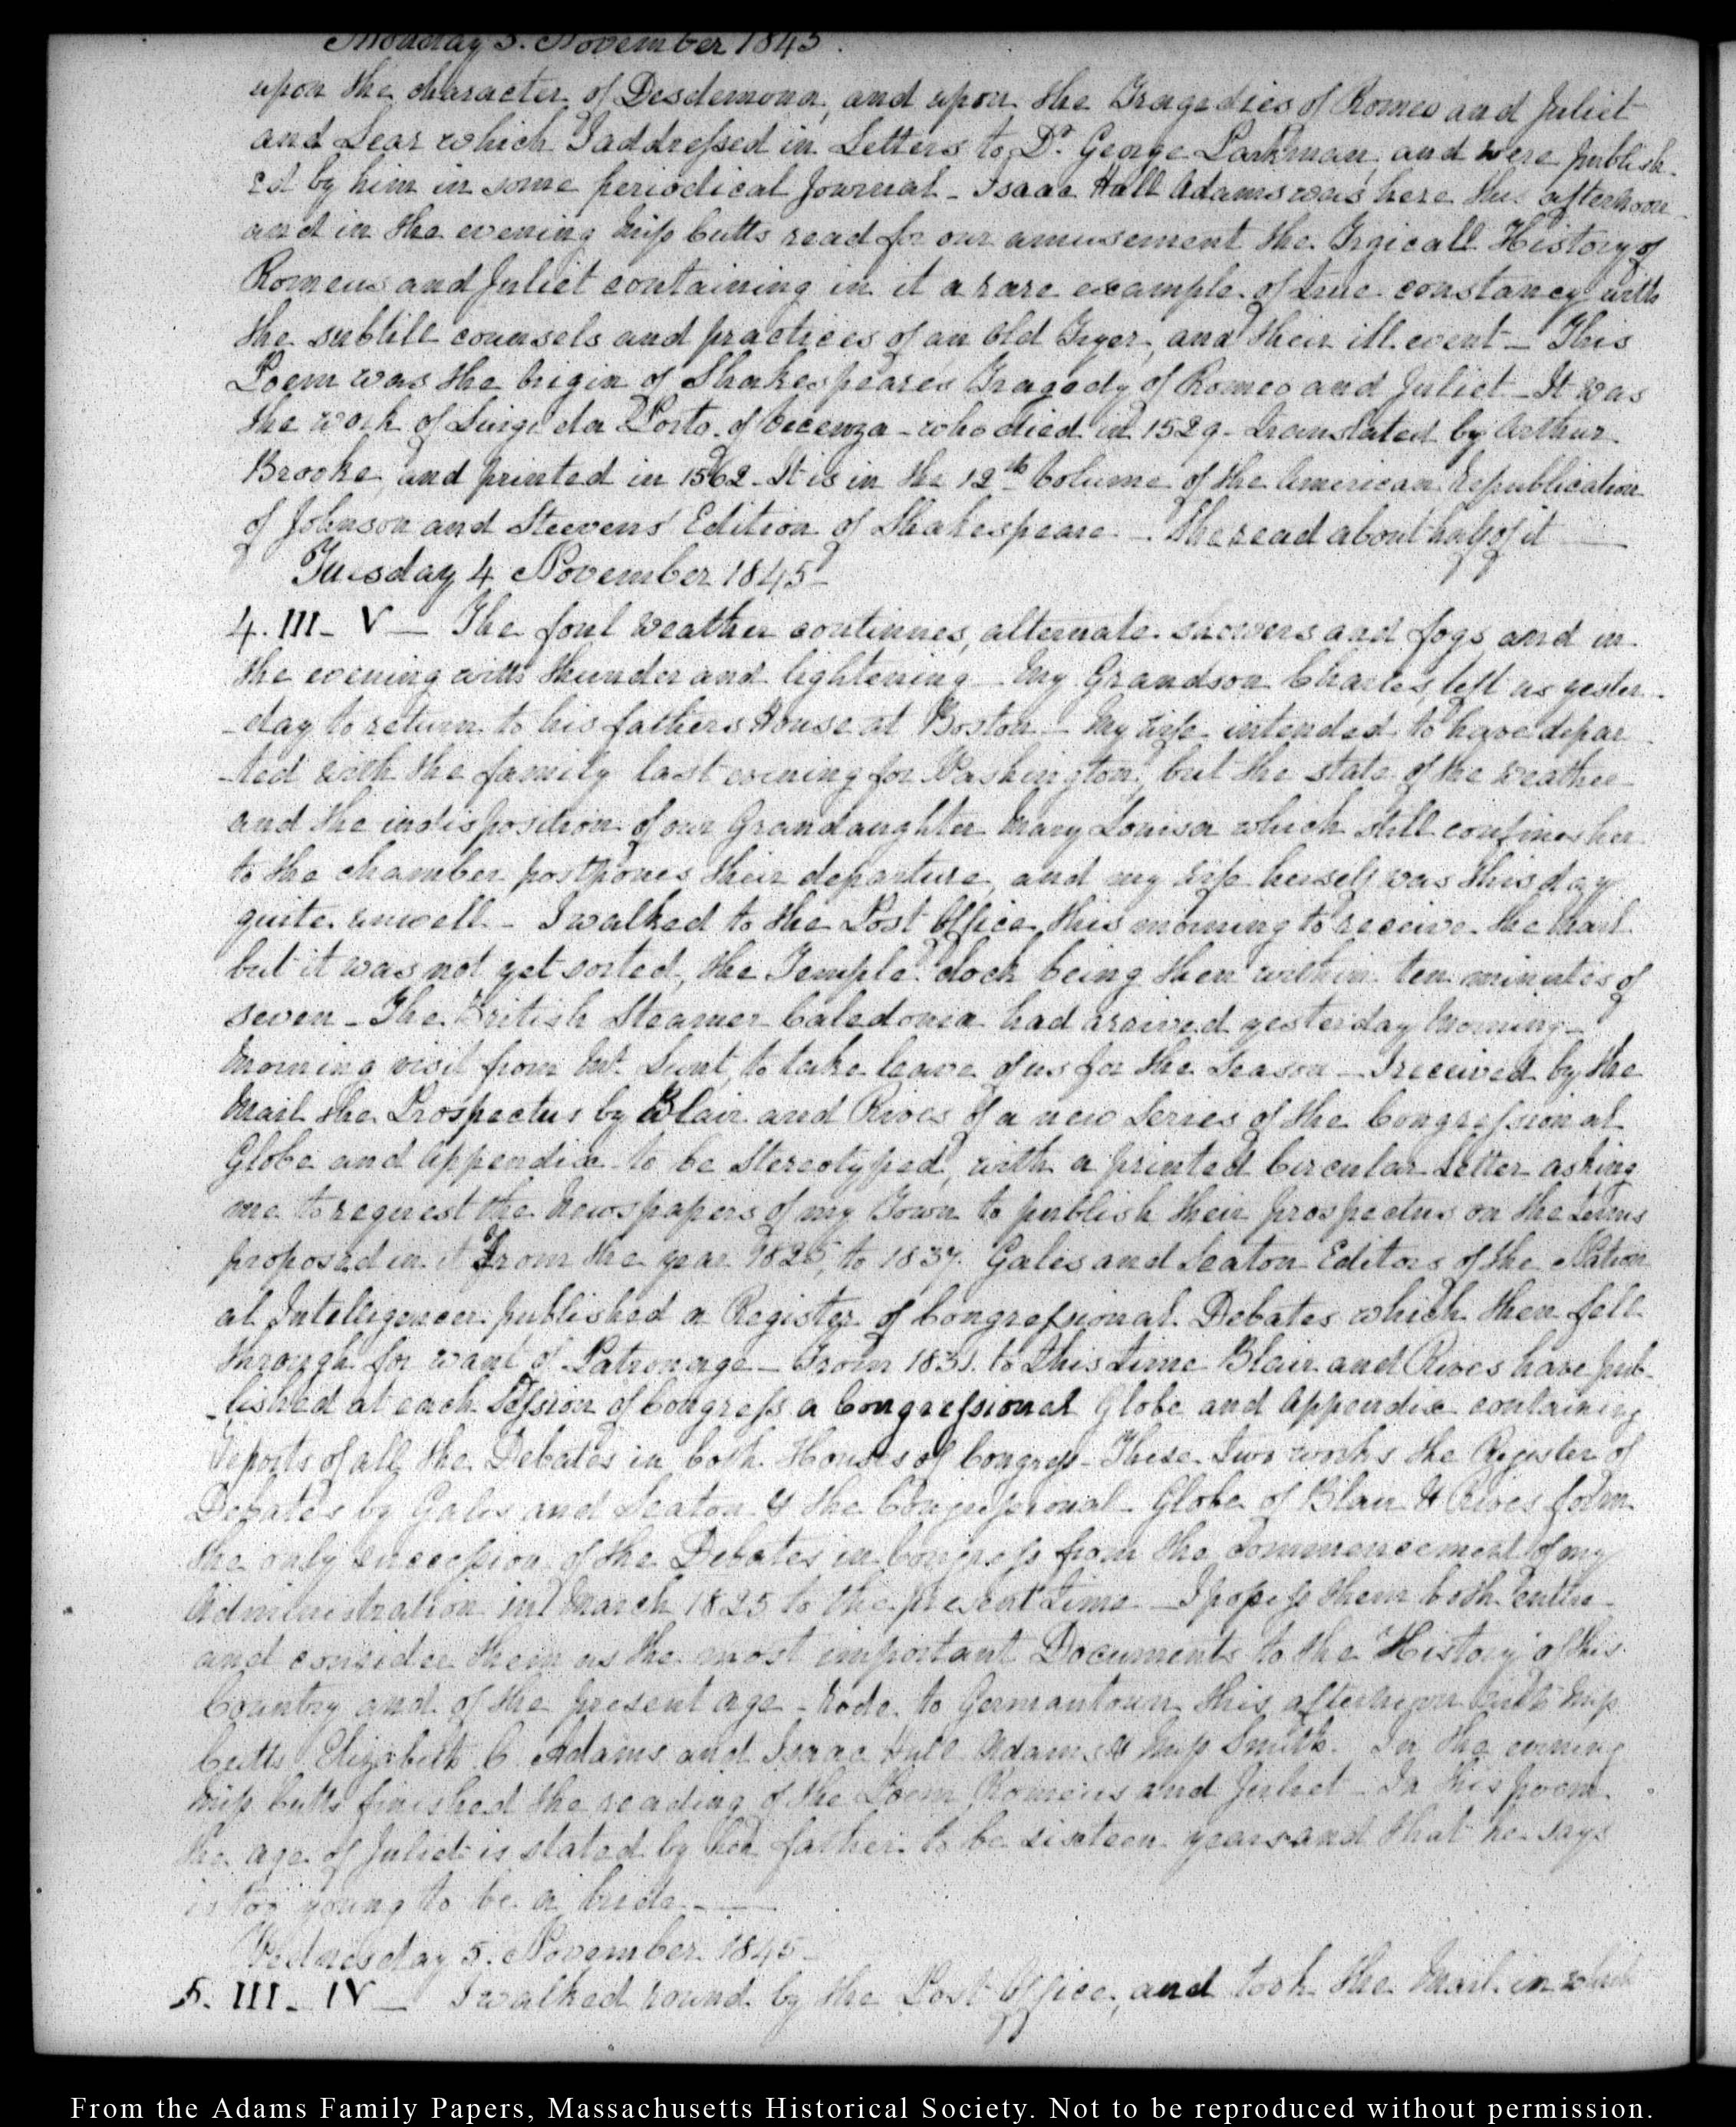 Monday 3. November 1845.
upon the character of Desdemona, and upon the Tragedies of Romeo and Juliet
and Lear which I addressed in Letters to Dr. George Parkman, and were publish-
ed by him in some periodical Journal - Isaac Hull Adams was here this afternoon
and in the evening Miss Cutts read for our amusement the Tragicall History of
Romeus and Juliet containing in it a rare example of true constancy with
the subtill counsels and practices of an Old Fryer, and their ill event - This
Poem was the Origin of Shakespeares Tragedy of Romeo and Juliet - It was
the work of Luigi da Porto of Vicenza - who died in 1529 - translated by Arthur
Brooke, and printed in 1562 - It is in the 12th Volume of the American republication
of Johnson and Steevens' Edition of Shakespeare - She read about half of it —
Tuesday 4 November 1845 -
4. III - V — The foul weather continues, alternate showers and fogs and in
the evening with thunder and lightening - My Grandson Charles, left us yester-
-day to return to his fathers House at Boston - My wife intended to have depar-
-ted with the family last evening for Washington, but the state of the weather
and the indisposition of our Grandaughter Mary Louisa which still confines her
to the chamber postpones their departure, and my wife herself was this day
quite unwell - I walked to the Post Office this morning to receive the Mail
but it was not yet sorted, the Temple clock being then within ten minutes of
seven - The British Steamer Caledonia had arrived yesterday Morning -
Morning visit from Mr. Lunt, to take leave of us for the Season - I received by the
Mail the Prospectus by Blair and Rives of a new Series of the Congressional
Globe and Appendix to be Stereotyped, with a printed Circular Letter asking
me to request the Newspapers of my Town to publish their prospectus on the terms
proposed in it From the year 1825, to 1837. Gales and Seaton Editors of the Nation
al Intelligencer published a Register of Congressional Debates which then fell
through for want of Patronage - From 1831. to this time Blair and Rives have pub-
-lished at each Session of Congress a Congressional Globe and Appendix containing
reports of all the Debates in both Houses of Congress - These Two works the Register of
Debates by Gales and Seaton & the Congressional Globe of Blair & Rives form
the only succession of the Debates in Congress from the Commencement of my
Administration in March 1825 to the present time - I possess them both entire
and consider them as the most important Documents to the History of this
Country and of the present age - Rode to Germantown this afternoon with Miss
Cutts Elizabeth C. Adams and Isaac Hull Adams & Miss Smith. In the evening
Miss Cutts finished the reading of the Poem Romeus and Juliet - In this poem
the age of Juliet is stated by her father to be sixteen years and that he says
is too young to be a bride. —
Wednesday 5. November 1845 -
5. III - IV — I walked round by the Post Office, and took the Mail in which
From the Adams Family Papers, Massachusetts Historical Society. Not to be reproduced without permission.